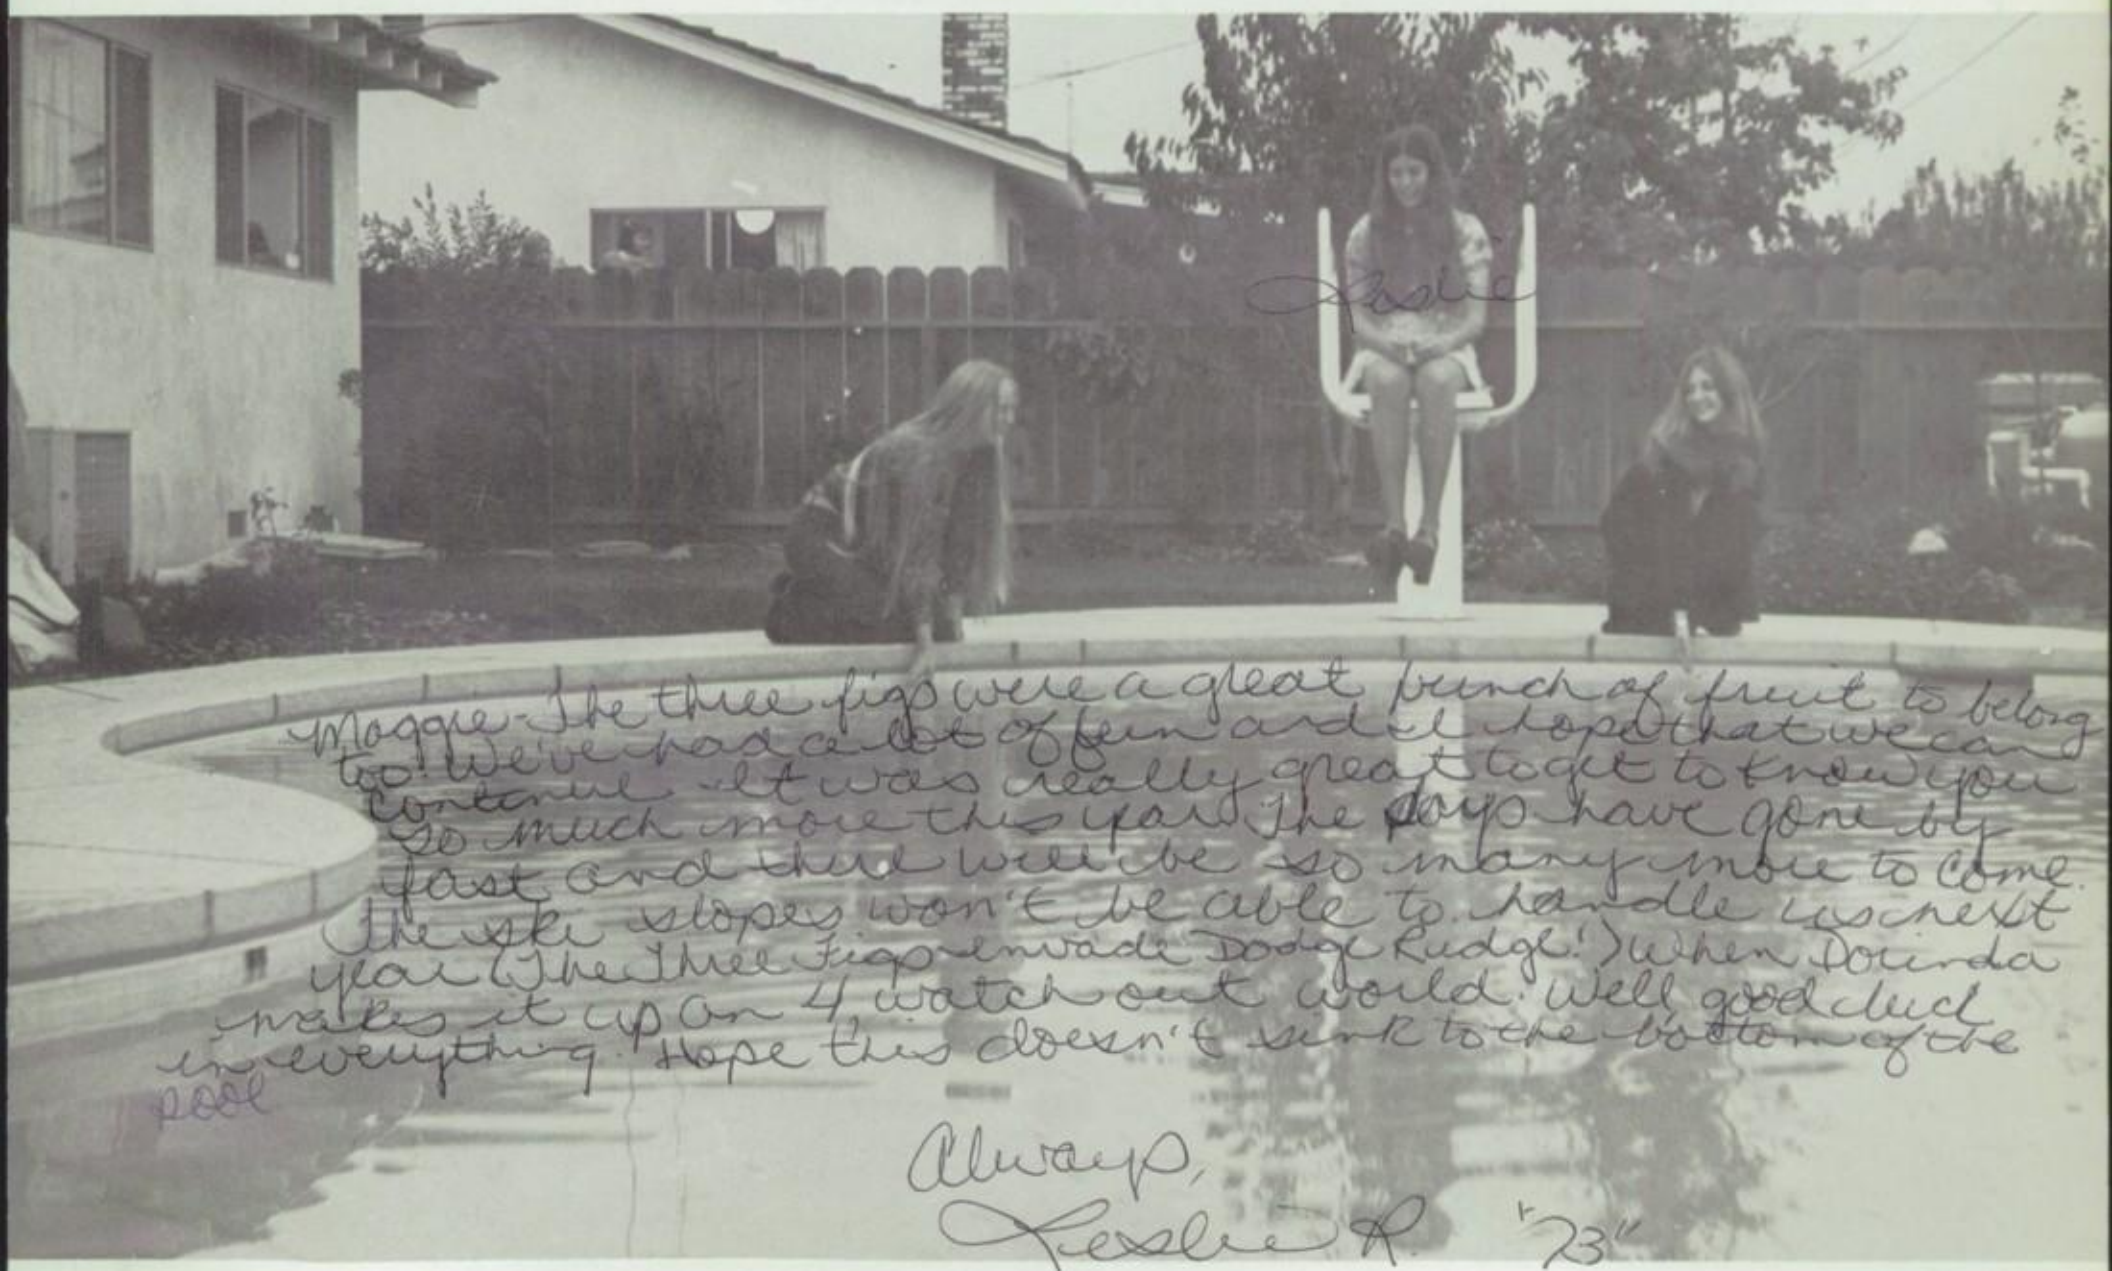 Leslie
Maggie - The three figs were a great bunch of fruit to belong
too. We've had a lot of fun and I hope that we can
continue. It was really great to get to know you
so much more this year. The days have gone by
fast and there will be so many more to come.
The ski slopes won't be able to handle us next
year (The Three Figs envade Dodge Rudge!) When Dorinda
makes it up on 4 watch out world. Well good luck
in everything. Hope this doesn't sink to the bottom of the
pool
Always,
Leslie R. "73"